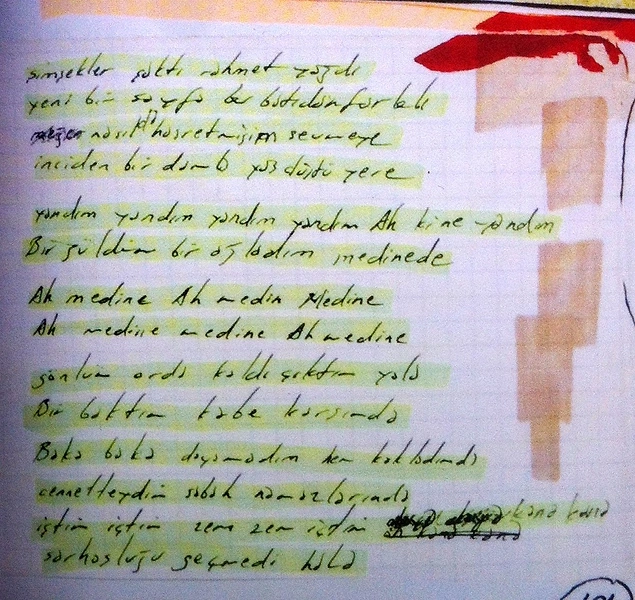 şimşekler çaktı rahmet yağdı
yeni bir sayfa bu
nasıl hasretmişim sevmeye
inciden bir damla yaş düştü yere
yandım yandım yandım yandım Ah kine yandım
Bir güldüm bir ağladım medinede
Ah medine Ah medin Medine
Ah medine medine Ah medine
gönlüm orda kaldı çıktım yola
Bir baktım kabe karşımda
Baka baka doyamadım hem kokladımda
cennetteydim sabah namazlarında
içtim içtim zem zem içtim kana kana
sarhoşluğu geçmedi hala